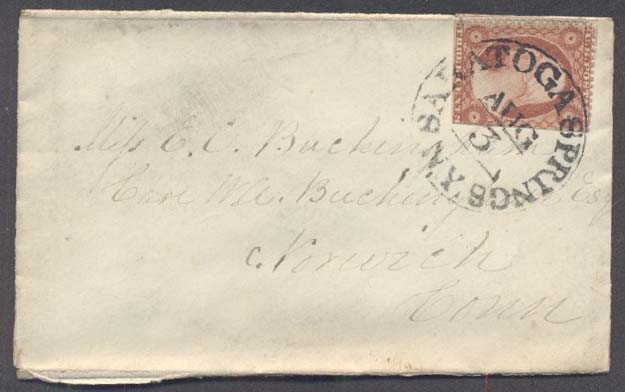 SARATOGA SPRINGS N.Y.
AUG
3
Miss E. C. Buckingham
Care Wm. A. Buckingham Esq
Norwich
Conn